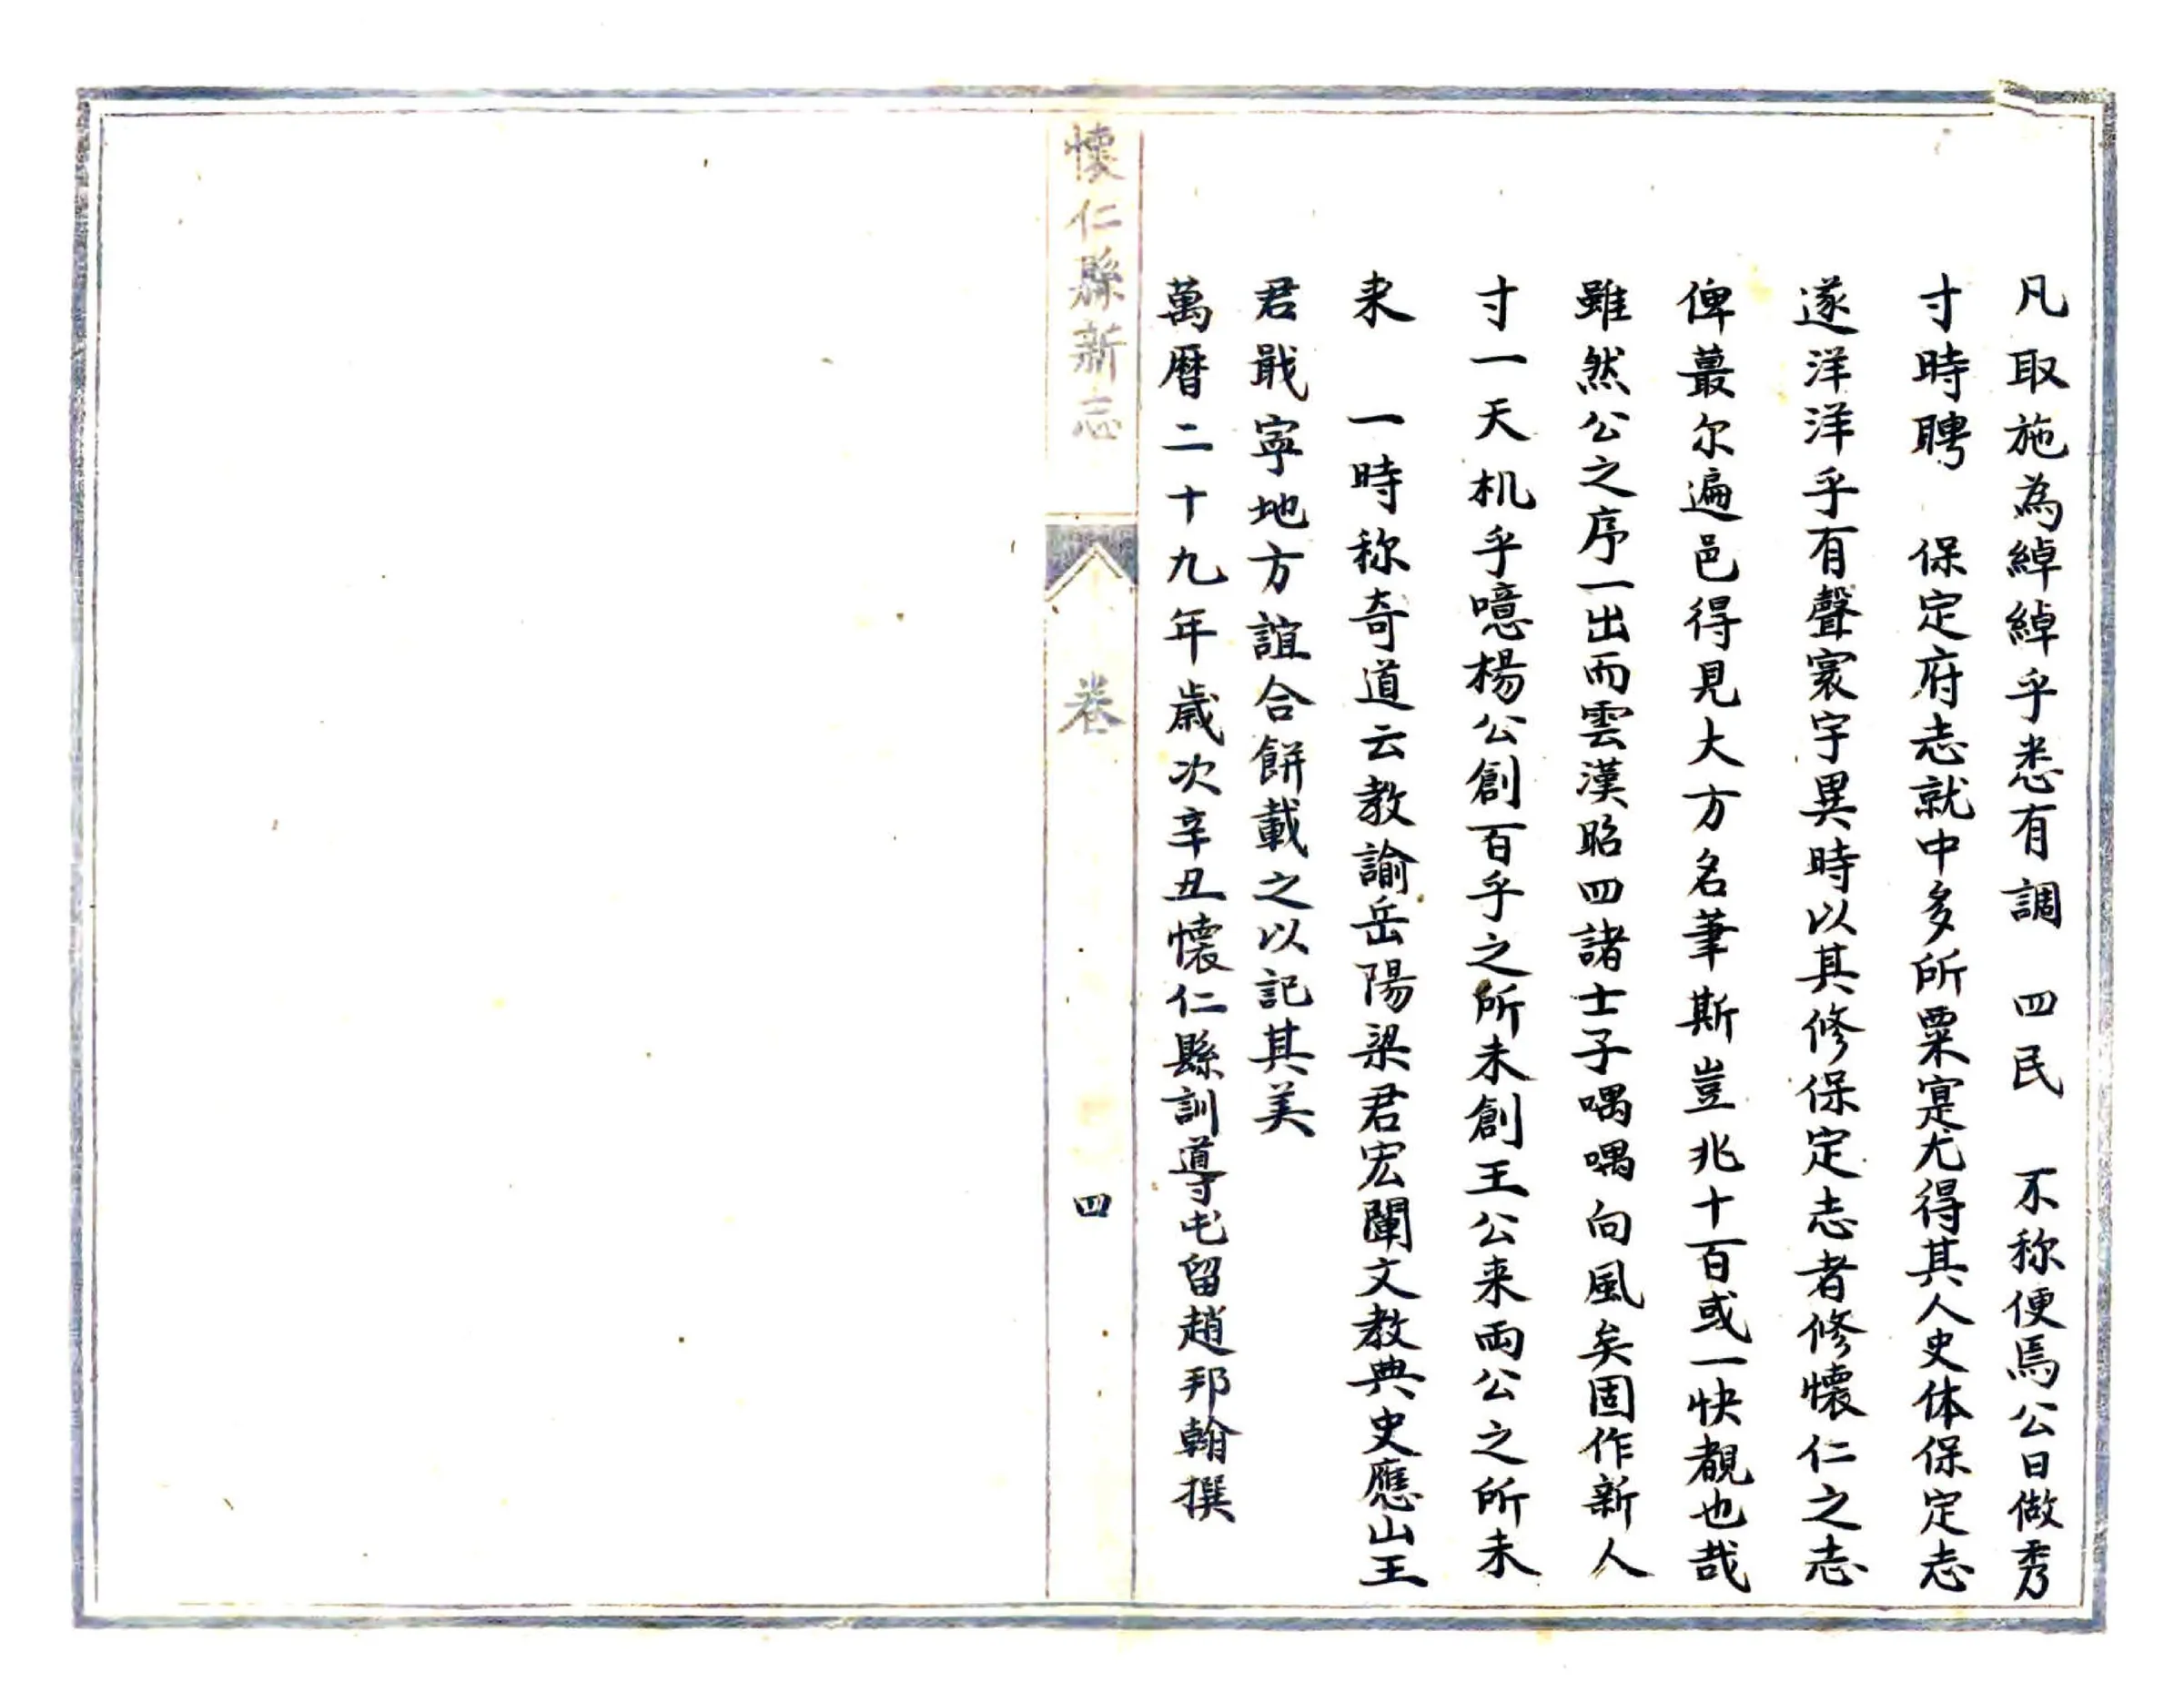 凡取施為綽綽乎悉有調　四民　不称便焉公日做秀
寸時聘　保定府志就中多所粟寔尤得其人史体保定志
遂洋洋乎有聲寰宇異時以其修保定志者修懷仁之志
俾蕞尔遍邑得見大方名筆斯豈兆十百或一快覩也哉
雖然公之序一出而雲漢昭四諸士子喁喁向風矣固作新人
寸一天机乎噫楊公創百乎之所未創王公来両公之所未
来　一時称奇道云教諭岳陽梁君宏闡文教典史應山王
君戢寧地方誼合餅載之以記其美
萬暦二十九年歲次辛丑懷仁縣訓導屯留趙邦翰撰
懷仁縣新志　卷　四